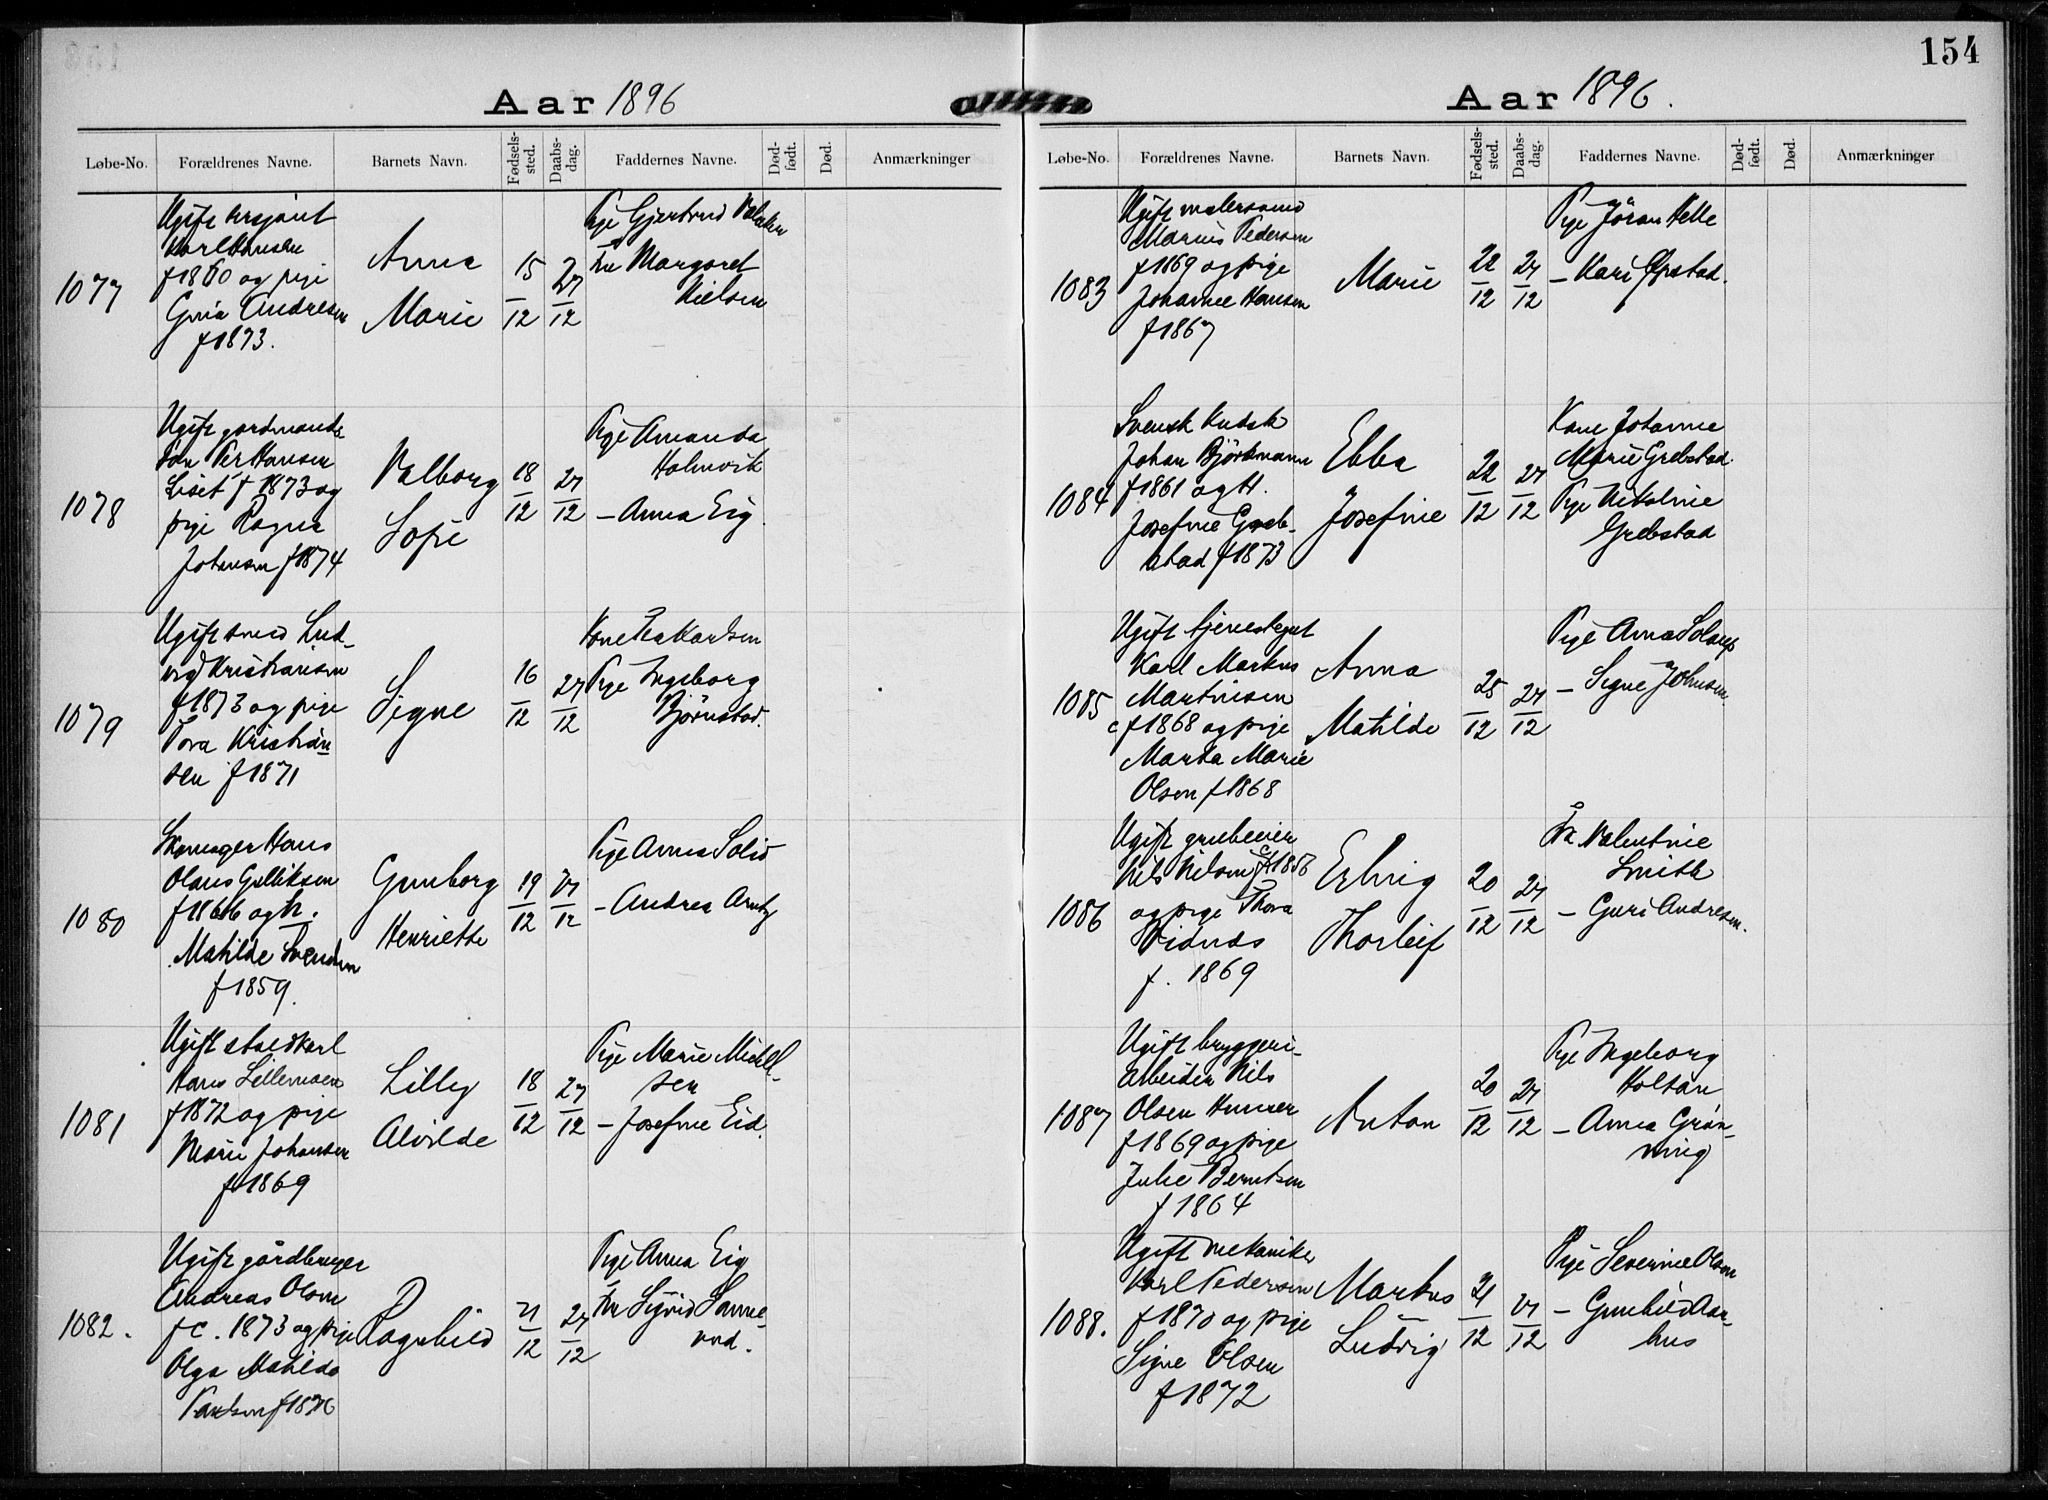 154
Aar 1896
Løbe-No. Forældrenes Navne. Barnets Navn. Fødsels-sted. Daabs-dag. Faddernes Navne. Død-født. Død. Anmærkninger
1077
Ugift sersjant
Karl Hansen
f 1870 og pige
Gina Andresen
f 1873.
Anna
Marie
15/12
27/12
Pige Gjertrud
Fru Margaret
Nielsen
1078
Ugift gardmands
søn Per Hansen
Liset f 1873 og
pige Ragna
Johansen f 1874
Valborg
Sofie
18/12
27/12
Pige Amanda
Holmvik
– Anna Eig
1079
Ugift smed Lud-
vig Kristiansen
f 1873 og pige
Tora Kristian
sen f 1871
Signe
16/12
27/12
Kone Thea Karlsen
Pige Ingeborg
Bjørnstad.
1080
Skomager Hans
Olaus Gulliksen
f 1866 og h.
Matilde Svendsen
f 1859.
Gunborg
Henriette
19/12
27/12
Pige Anna Solid
– Andrea
1081
Ugift staldkarl
Hans Lillemoen
f 1872 og pige
Marie Johansen
f 1869
Lilly
Alvilde
18/12
27/12
Pige Marie Mickel-
sen
– Josefine Eid.
1082.
Ugift gårdbruger
Andreas Olsen
f c. 1873 og pige
Olga Matilde
Paulsen f 1876
Ragnhild
21/12
27/12
Pige Anna Eig
Fru Sigrid Sanne-
rud.
Aar 1896.
Løbe-No. Forældrenes Navne. Barnets Navn. Fødsels-sted. Daabs-dag. Faddernes Navne. Død-født. Død. Anmærkninger
1083
Ugift malersvend
Marius Pedersen
f 1869 og pige
Johanne Hansen
f 1867
Marie
22/12
27/12
Pige Jöran Helle
– Kari Øpstad.
1084
Svensk Kudsk
Johan Björkmann
f 1861 og H.
Josefine Greb-
stad f 1873
Ebba
Josefine
22/12
27/12
Kone Johanne
Marie Grebstad.
Pige Nikoline
Grebstad
1085
Ugift tjenestegut
Karl Markus
Martinisen
c f 1868 og pige
Marta Marie
Olsen f 1868
Anna
Matilde
25/12
27/12
Pige Anna
– Signe Johnsen
1086
Ugift grubeeier
Nils Nilsen f c 1856
og pige Thora
f. 1869
Erling
Thorleif
20/12
27/12
Frk Valentine
Smith
– Guri Andresen.
1087
Ugift bryggeri-
arbeider Nils
Olsen Hunner
f 1869 og pige
Julie Berntsen
f 1864
Anton
20/12
27/12
Pige Ingeborg
Holtan
– Anna Grøn-
ning
1088.
Ugift mekaniker
Karl Pedersen
f 1870 og pige
Signe Olsen
f 1872
Markus
Ludvig
21/12
27/12
Pige Severine Olsen
– Gunhild Aar-
hus